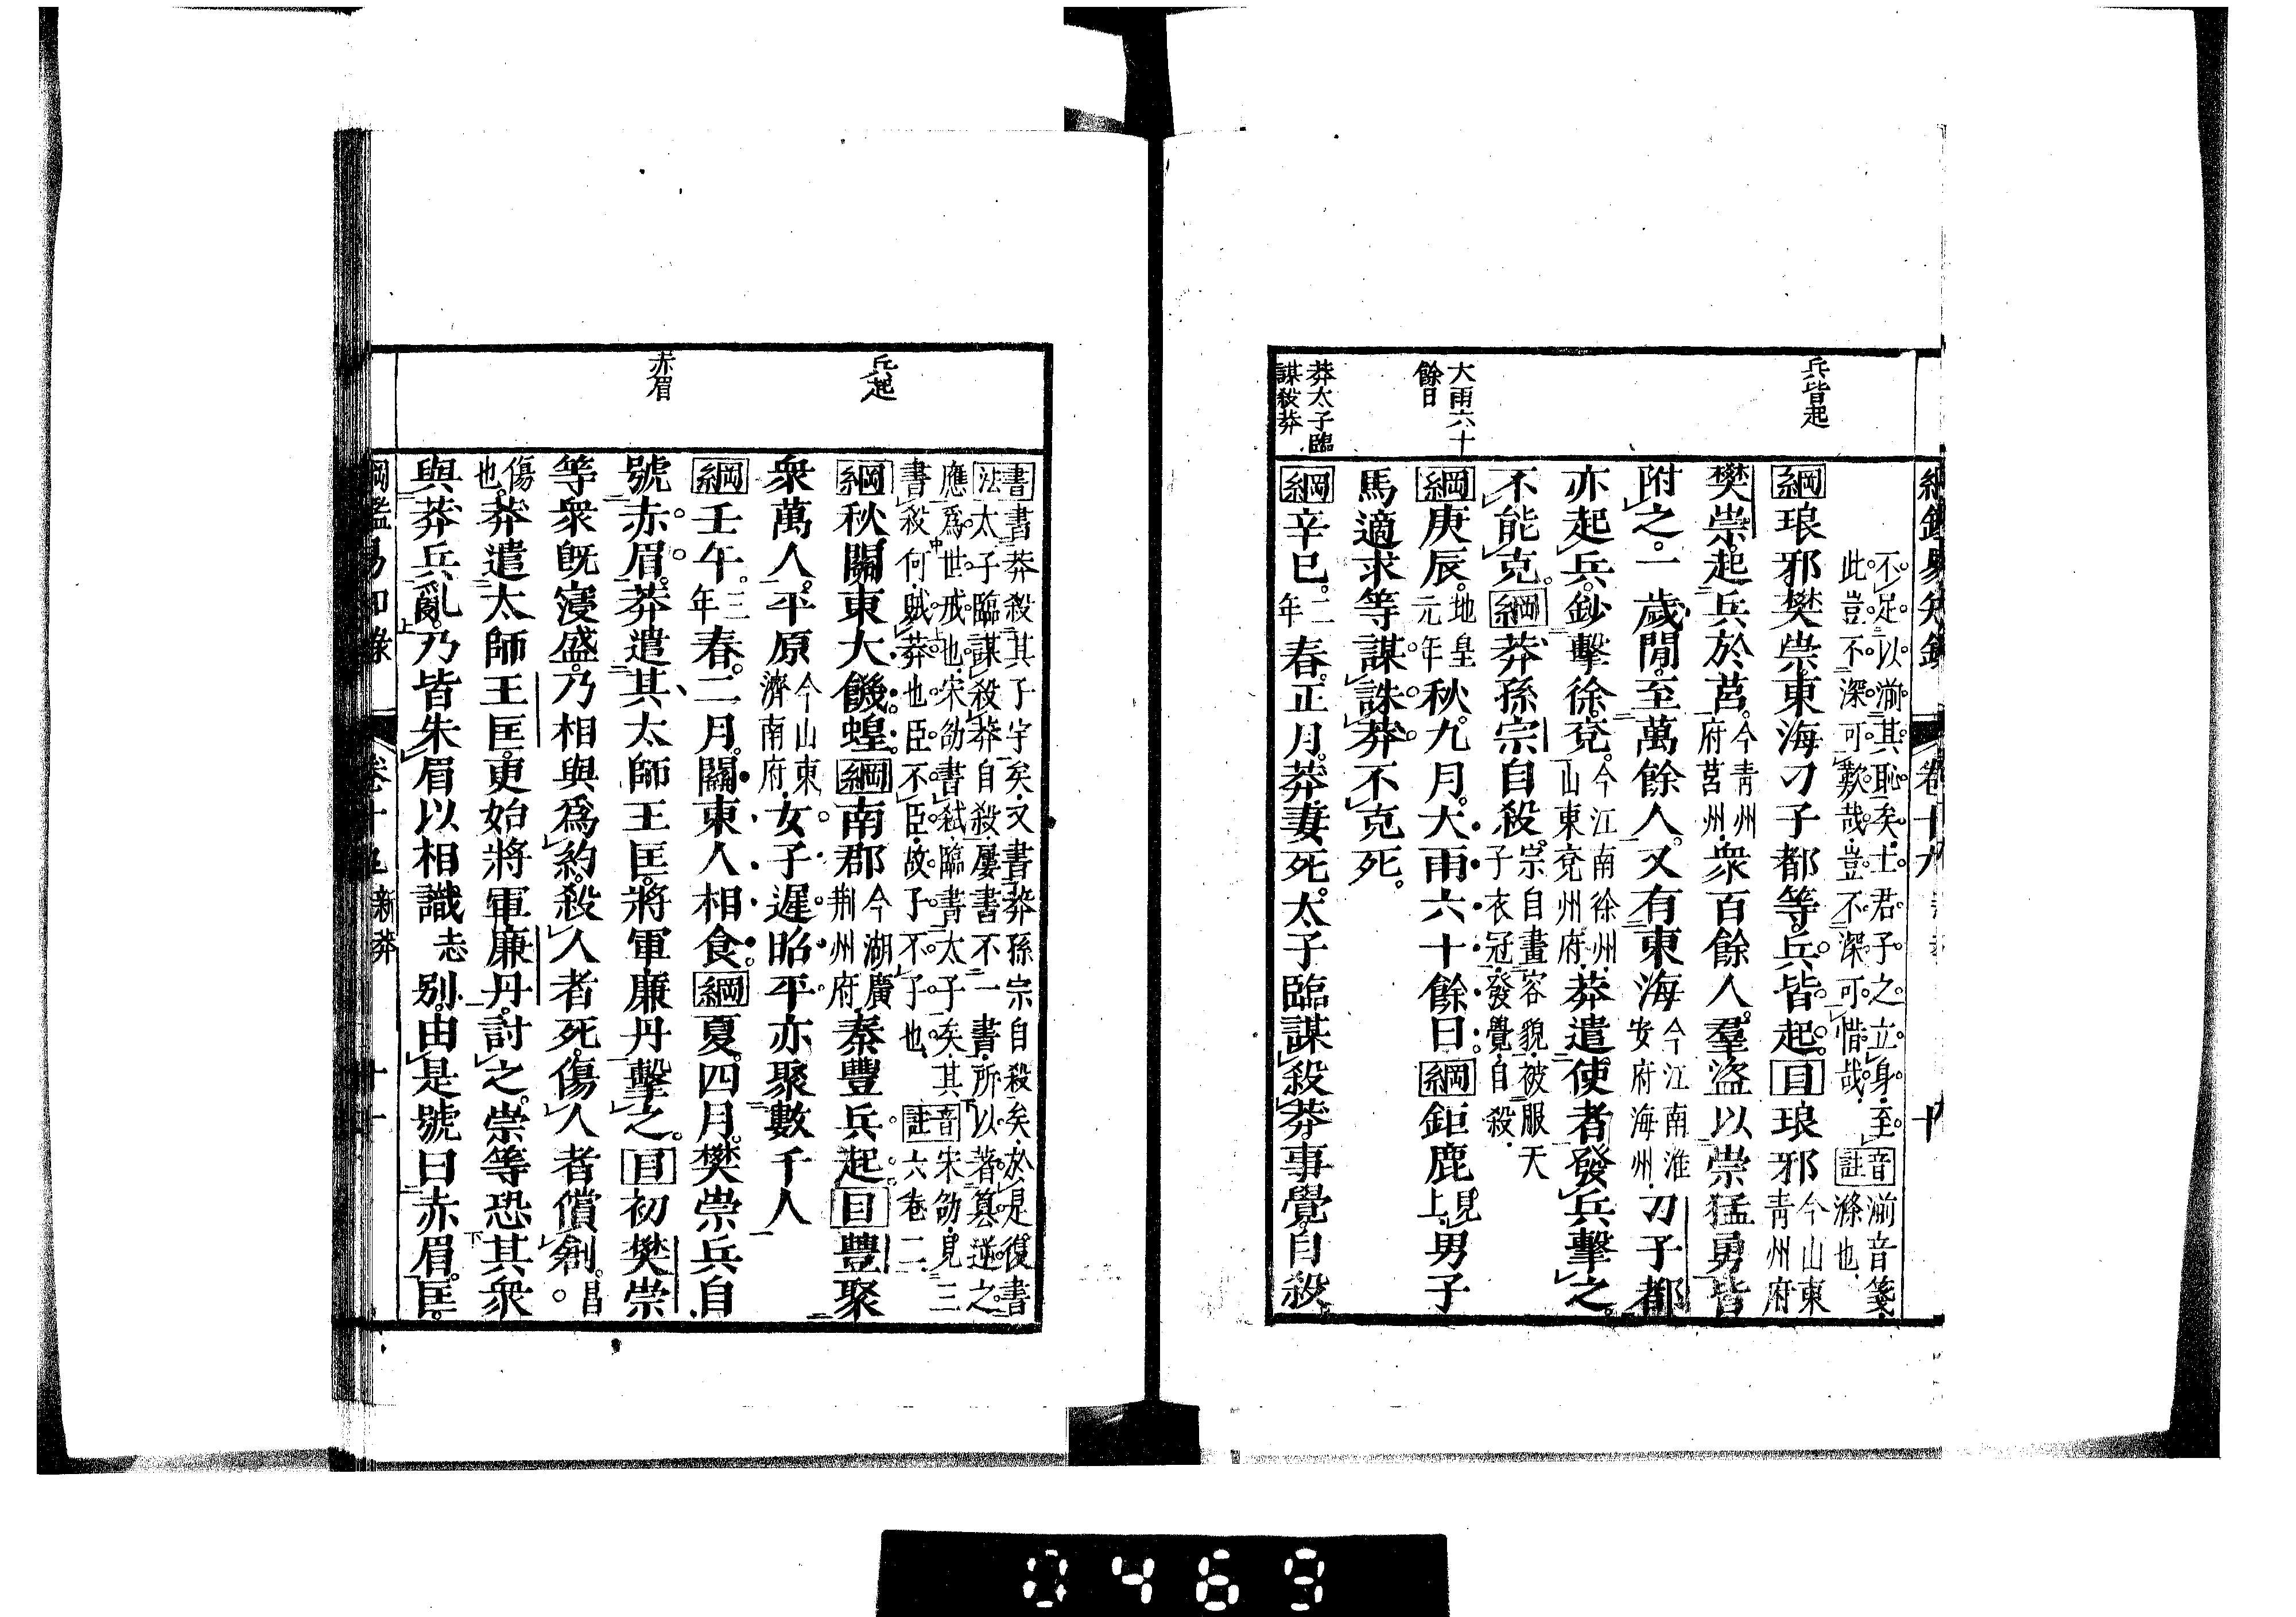 不足以湔其恥矣士君子之立身至
此豈不深可歎哉豈不深可惜哉
音註
湔音箋
滌也
綱琅邪樊崇東海刁子都等兵皆起目琅邪
今山東
青州府
樊崇起兵於莒
今青州
府莒州
衆百餘人羣盜以崇猛勇皆
附之一歲閒至萬餘人又有東海
今江南淮
安府海州
刀子都
亦起兵鈔擊徐兗
今江南徐州
山東兗州府
莽遣使者發兵擊之
不能克綱莽孫宗自殺
宗自畫容貌被服天
子衣冠發覺自殺
綱庚辰
地皇
元年
秋九月大雨六十餘日綱鉅鹿
見
上
男子
馬適求等謀誅莽不克死
綱辛巳
二
年
春正月莽妻死太子臨謀殺莽事覺自殺
兵皆起
大雨六十
餘日
莽太子臨
謀殺莽
書法
書莽殺其子宇矣又書莽孫宗自殺矣於是復書
太子臨謀殺莽自殺屢書不一書所以著篡逆之
應爲世戒也宋劭書弒臨書太子矣其
書殺何賊莽也臣不臣故子不子也
音註
宋劭見三
六卷二
綱秋關東大饑蝗綱南郡
今湖廣
荆州府
秦豐兵起目豐聚
衆萬人平原
今山東
濟南府
女子遲昭平亦聚數千人
綱壬午
三
年
春二月關東人相食綱夏四月樊崇兵自
號赤眉莽遣其太師王匡將軍廉丹擊之目初樊崇
等衆旣寖盛乃相與爲約殺人者死傷人者償創
昌
傷
也
莽遣太師王匡更始將軍廉丹討之崇等恐其衆
與莽兵亂乃皆朱眉以相識
志
別由是號曰赤眉匡
兵起
赤眉
0469